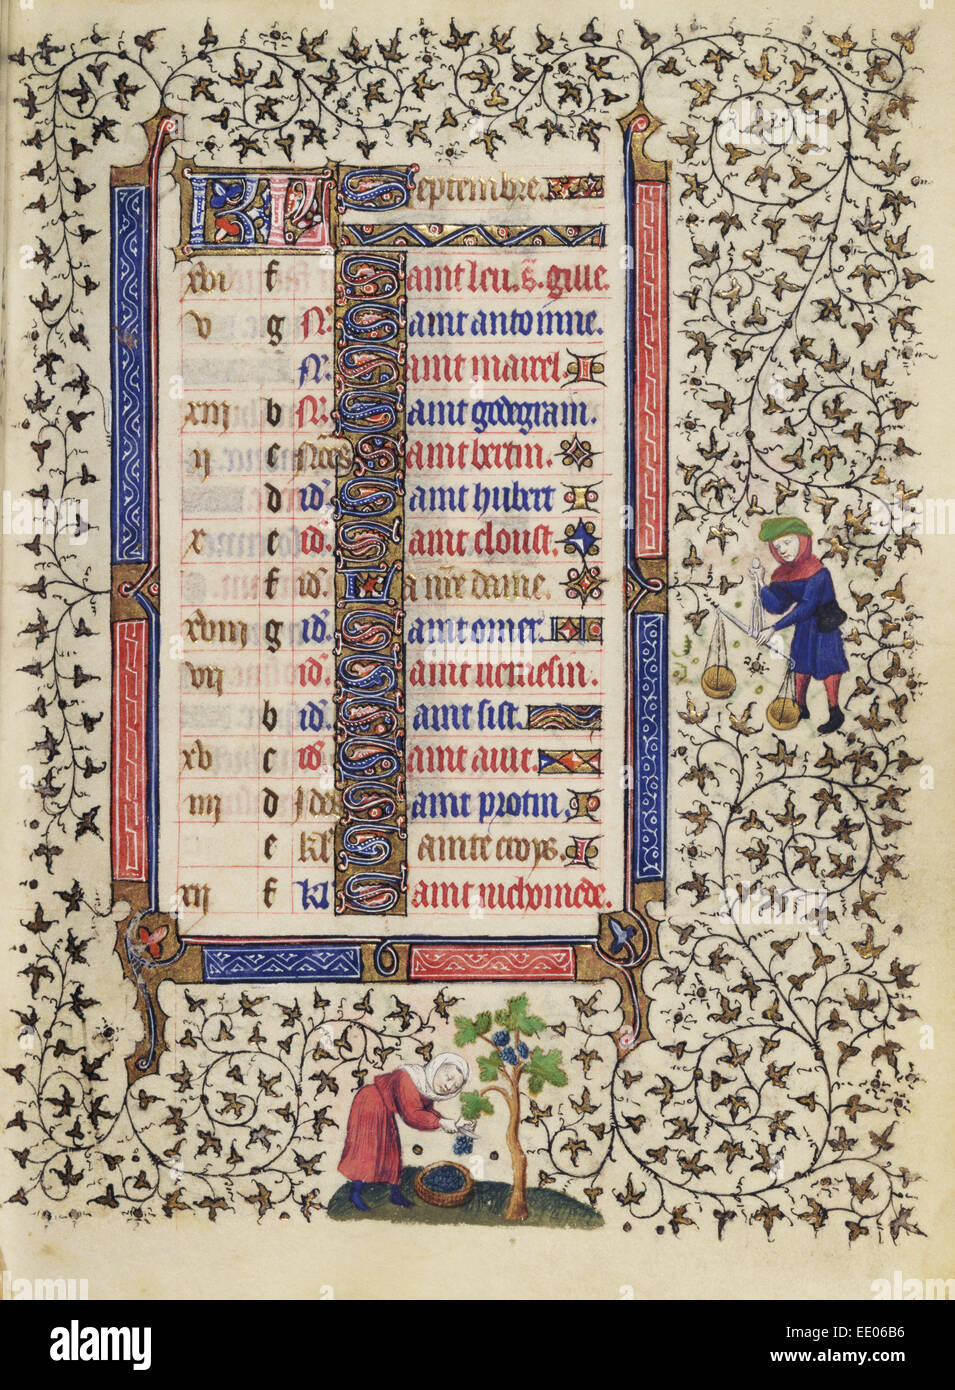 KL Septembre.
xvi f Saint leu. s. gille.
v g N. Saint antoinne.
N. Saint marcel.
xiii b N. Saint godegram.
ii c Nones Saint bertin.
d id. Saint hubert
x e id. Saint cloust.
f id. La nre dame.
xviii g id. Saint omer.
vii id. Saint
b id. Saint sist.
xv c id. Saint
iiii d Idus Saint protin.
e kl. Sainte croys.
xii f kl. Saint nichomede.
alamy
alamy
Image ID: EE06B6
www.alamy.com